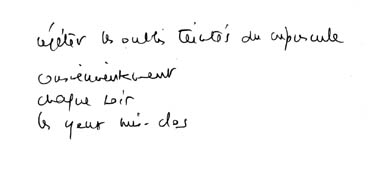 répéter les oublis teintés du crépuscule
consciencieusement
chaque soir
les yeux mi-clos